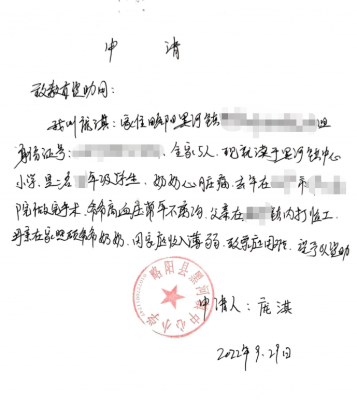 申 请
致教育资助网:
我叫庞淇:家住略阳黑河镇
身份证号: 全家5人,现就读于黑河镇中心
小学,是一名 年级学生,奶奶心脏病,去年在 市
院做完手术,爷爷高血压常年不离,父亲在 镇内打临工,
母亲在家照顾爷爷奶奶,因家庭收入薄弱,致家庭困难,望予以资助
略阳县黑河镇中心小学
申请人:庞淇
2022年9.29日